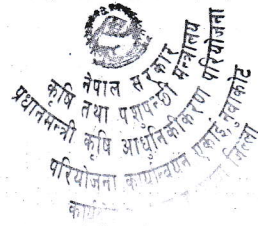 नेपाल सरकार
कृषि तथा पशुपन्छी मन्त्रालय
प्रधानमन्त्री कृषि आधुनिकीकरण परियोजना
परियोजना कार्यान्वयन एकाई, नुवाकोट
जिल्ला